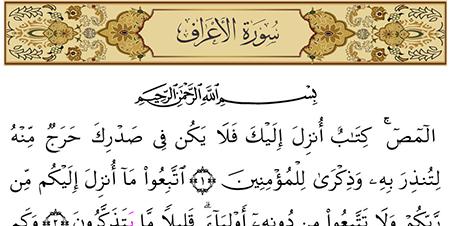 سُورَةُ الأَعْرَافِ
بِسْمِ ٱللَّهِ ٱلرَّحْمَٰنِ ٱلرَّحِيمِ
الٓمٓصٓ ۚ كِتَٰبٌ أُنزِلَ إِلَيْكَ فَلَا يَكُن فِي صَدْرِكَ حَرَجٌ مِّنْهُ
لِتُنذِرَ بِهِۦ وَذِكْرَىٰ لِلْمُؤْمِنِينَ ﴿١﴾ ٱتَّبِعُوا۟ مَآ أُنزِلَ إِلَيْكُم مِّن
رَّبِّكُمْ وَلَا تَتَّبِعُوا۟ مِن دُونِهِۦٓ أَوْلِيَآءَ ۗ قَلِيلًا مَّا يَتَذَكَّرُونَ ﴿٢﴾ وَكَم